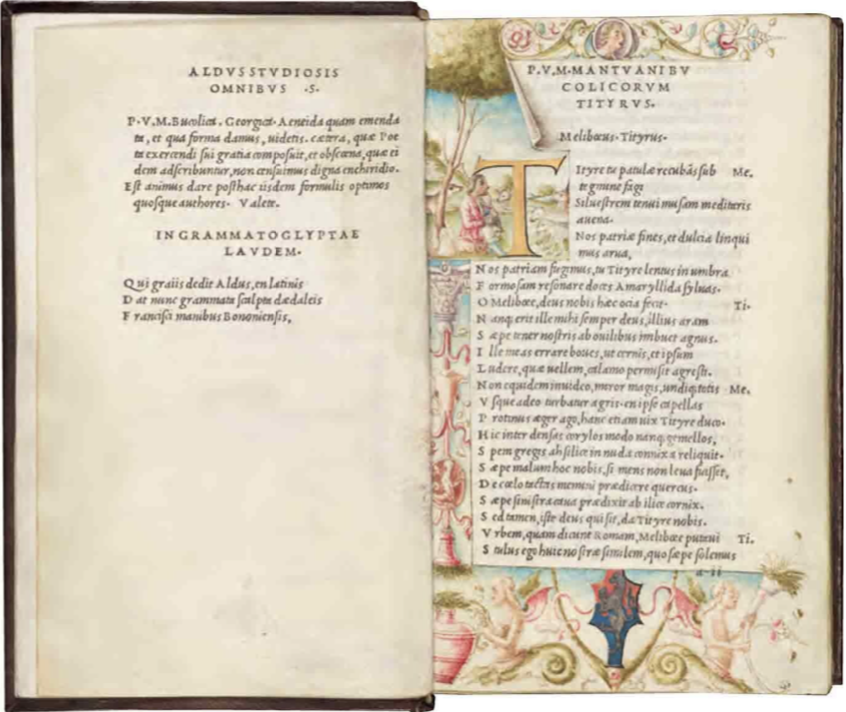 ALDVS STVDIOSIS
OMNIBVS ·S·
P·V.M. Bucolica. Georgica. Aeneida quam emenda
ta, et qua forma damus, uidetis. cætera, quæ Poe
ta exercendi sui gratia composuit, et obscœna, quæ ei
dem adscribuntur, non censuimus digna enchiridio.
Est animus dare posthac iisdem formulis optimos
quosque authores. Valete.
IN GRAMMATOGLYPTAE
LAVDEM.
Qui graiis dedit Aldus, en latinis
Dat nunc grammata scalpta dædaleis
Francisci manibus Bononiensis.
P.V.M. MANTVANI BV
COLICORVM
TITYRVS.
Melibœus. Tityrus.
Tityre tu patulæ recubãs sub Me.
tegmine fagi
Siluestrem tenui musam meditaris
auena.
Nos patriæ fines, et dulcia linqui
mus arua,
Nos patriam fugimus, tu Tityre lentus in umbra
Formosam resonare doces Amaryllida syluas.
O Melibœe, deus nobis hæc ocia fecit. Ti.
Nanq; erit ille mihi semper deus, illius aram
Sæpe tener nostris ab ouilibus imbuet agnus.
Ille meas errare boues, ut cernis, et ipsum
Ludere, quæ uellem, calamo permisit agresti.
Non equidem inuideo, miror magis, undiq; totis Me.
Vsque adeo turbatur agris. en ipse capellas
Protinus æger ago, hanc etiam uix Tityre duco.
Hic inter densas corylos modo nanq; gemellos,
Spem gregis ah silice in nuda connixa reliquit.
Sæpe malum hoc nobis, si mens non leua fuisset,
De cœlo tactas memini prædicere quercus.
Sæpe sinistra caua prædixit ab ilice cornix.
Sed tamen, iste deus qui sit, da Tityre nobis.
Vrbem, quam dicunt Romam, Melibœe putaui Ti.
Stultus ego huic nostræ similem, quo sæpe solemus
a-ii